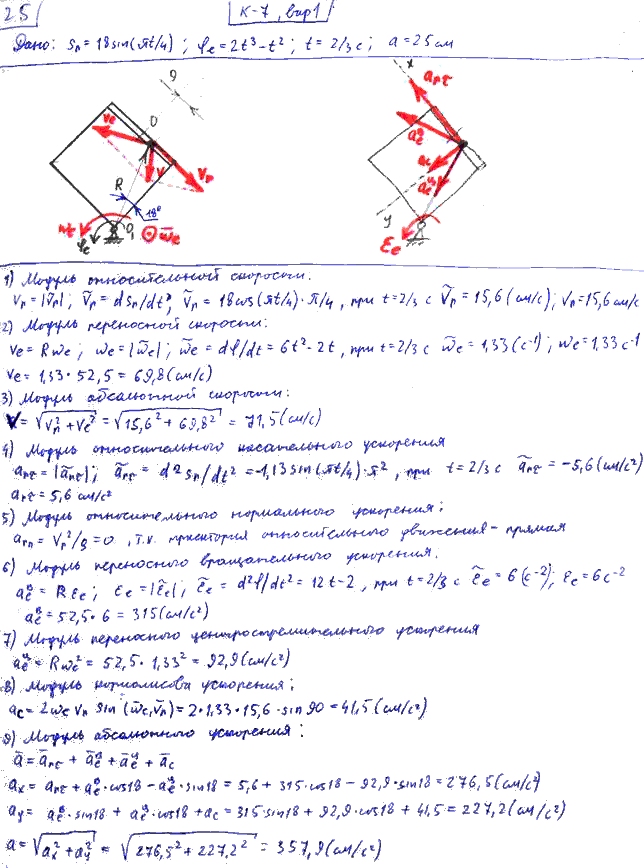 25
К-7, вар 1
Дано: Sr = 18sin(πt/4); φe = 2t³-t²; t = 2/3 c; a = 25 см
9
O
ve
vr
v
R
18°
O1
wt
φe
ω̄e
x
arτ
aeв
ac
aeц
y
εe
1) Модуль относительной скорости:
vr = |ṽr|; ṽr = dSr/dt, ṽr = 18cos(πt/4)·π/4, при t=2/3 c ṽr = 15,6 (см/с); vr = 15,6 см/с
2) Модуль переносной скорости:
ve = Rωe; ωe = |ω̃e|; ω̃e = dφ/dt = 6t²-2t, при t=2/3 c ω̃e = 1,33 (c⁻¹); ωe = 1,33 c⁻¹
ve = 1,33·52,5 = 69,8 (см/с)
3) Модуль абсолютной скорости:
V = √(vr²+ve²) = √(15,6²+69,8²) = 71,5 (см/с)
4) Модуль относительного касательного ускорения
arτ = |ãrτ|; ãrτ = d²Sr/dt² = -1,13sin(πt/4)·π², при t=2/3 c ãrτ = -5,6 (см/с²)
arτ = 5,6 см/с²
5) Модуль относительного нормального ускорения:
arn = Vr²/ρ = 0, т.к. траектория относительного движения - прямая
6) Модуль переносного вращательного ускорения.
aeв = Rεe; εe = |ε̃e|; ε̃e = d²φ/dt² = 12t-2, при t=2/3 c ε̃e = 6 (c⁻²); εe = 6 c⁻²
aeв = 52,5·6 = 315 (см/с²)
7) Модуль переносного центростремительного ускорения
aeц = Rωe² = 52,5·1,33² = 92,9 (см/с²)
8) Модуль кориолисова ускорения:
ac = 2ωe vr sin(ω̄e,v̄r) = 2·1,33·15,6·sin90 = 41,5 (см/с²)
9) Модуль абсолютного ускорения:
ā = ārτ + āeв + āeц + āc
ax = arτ + aeв·cos18 - aeц·sin18 = 5,6 + 315·cos18 - 92,9·sin18 = 276,5 (см/с²)
ay = aeв·sin18 + aeц·cos18 + ac = 315 sin18 + 92,9 cos18 + 41,5 = 227,2 (см/с²)
a = √(ax²+ay²) = √(276,5²+227,2²) = 357,9 (см/с²)